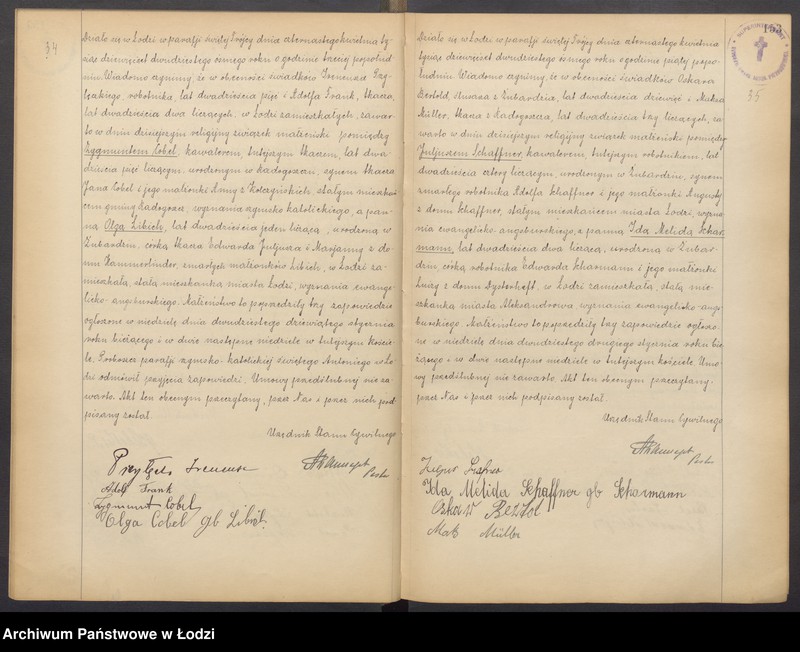 34
Działo się w Łodzi w parafji świętej Trójcy dnia czternastego kwietnia ty-
siąc dziewięćset dwudziestego ósmego roku o godzinie trzeciej popołud-
niu. Wiadomo czynimy, że w obecności świadków Ireneusza
robotnika, lat dwadzieścia pięć i Adolfa Frank, tkacza,
lat dwadzieścia dwa liczących, w Łodzi zamieszkałych, zawar-
to w dniu dzisiejszym religijny związek małżeński pomiędzy
Zygmuntem Cobel, kawalerem, tutejszym tkaczem, lat dwa-
dzieścia pięć liczącym, urodzonym w Radogoszczu, synem tkacza
Jana Cobel i jego małżonki Anny z stałym mieszkań-
cem gminy Radogoszcz, wyznania rzymsko katolickiego, a pan-
ną Olgą Libich, lat dwadzieścia jeden liczącą, urodzoną w
Żubardziu, córką tkacza Edwarda Juljusza i Marjanny z do-
mu Hammerlinder, zmarłych małżonków Libich, w Łodzi za-
mieszkałą, stałą mieszkanką miasta Łodzi, wyznania ewange-
licko-augsburskiego. Małżeństwo to poprzedziły trzy zapowiedzie
ogłoszone w niedzielę dnia dwudziestego dziewiątego stycznia
roku bieżącego i w dwie następne niedziele w tutejszym koście-
le. Proboszcz parafji rzymsko-katolickiej świętego Antoniego w Ło-
dzi odmówił przyjęcia zapowiedzi. Umowy przedślubnej nie za-
warto. Akt ten obecnym przeczytany, przez Nas i przez nich pod-
pisany został.
Urzędnik Stanu Cywilnego
Ireneusz
Adolf Frank
Zygmunt Cobel
Olga Cobel gb Libich.
153
35
Działo się w Łodzi w parafji świętej Trójcy dnia czternastego kwietnia
tysiąc dziewięćset dwudziestego ósmego roku o godzinie piątej popo-
łudniu. Wiadomo czynimy, że w obecności świadków Oskara
Bertold, z Żubardzia, lat dwadzieścia dziewięć i Maksa
Müller, tkacza z Radogoszcza, lat dwadzieścia trzy liczących, za-
warto w dniu dzisiejszym religijny związek małżeński pomiędzy
Juljuszem Schaffner, kawalerem, tutejszym robotnikiem, lat
dwadzieścia cztery liczącym, urodzonym w Żubardziu, synem
zmarłego robotnika Adolfa Schaffner i jego małżonki Augusty
z domu Schaffner, stałym mieszkańcem miasta Łodzi, wyzna-
nia ewangelicko-augsburskiego, a panną Idą Melidą Schar-
mann, lat dwadzieścia dwa liczącą, urodzoną w Żubar-
dziu, córką robotnika Edwarda Scharmann i jego małżonki
Luizy z domu Dysterheft, w Łodzi zamieszkałą, stałą mie-
szkanką miasta Aleksandrowa, wyznania ewangelicko-augs-
burskiego. Małżeństwo to poprzedziły trzy zapowiedzie ogłoszo-
ne w niedzielę dnia dwudziestego drugiego stycznia roku bie-
żącego i w dwie następne niedziele w tutejszym kościele. Umo-
wy przedślubnej nie zawarto. Akt ten obecnym przeczytany,
przez Nas i przez nich podpisany został.
Urzędnik Stanu Cywilnego
Ida Melida Schaffner gb Scharmann
Oskar
Maks Müller
Archiwum Państwowe w Łodzi